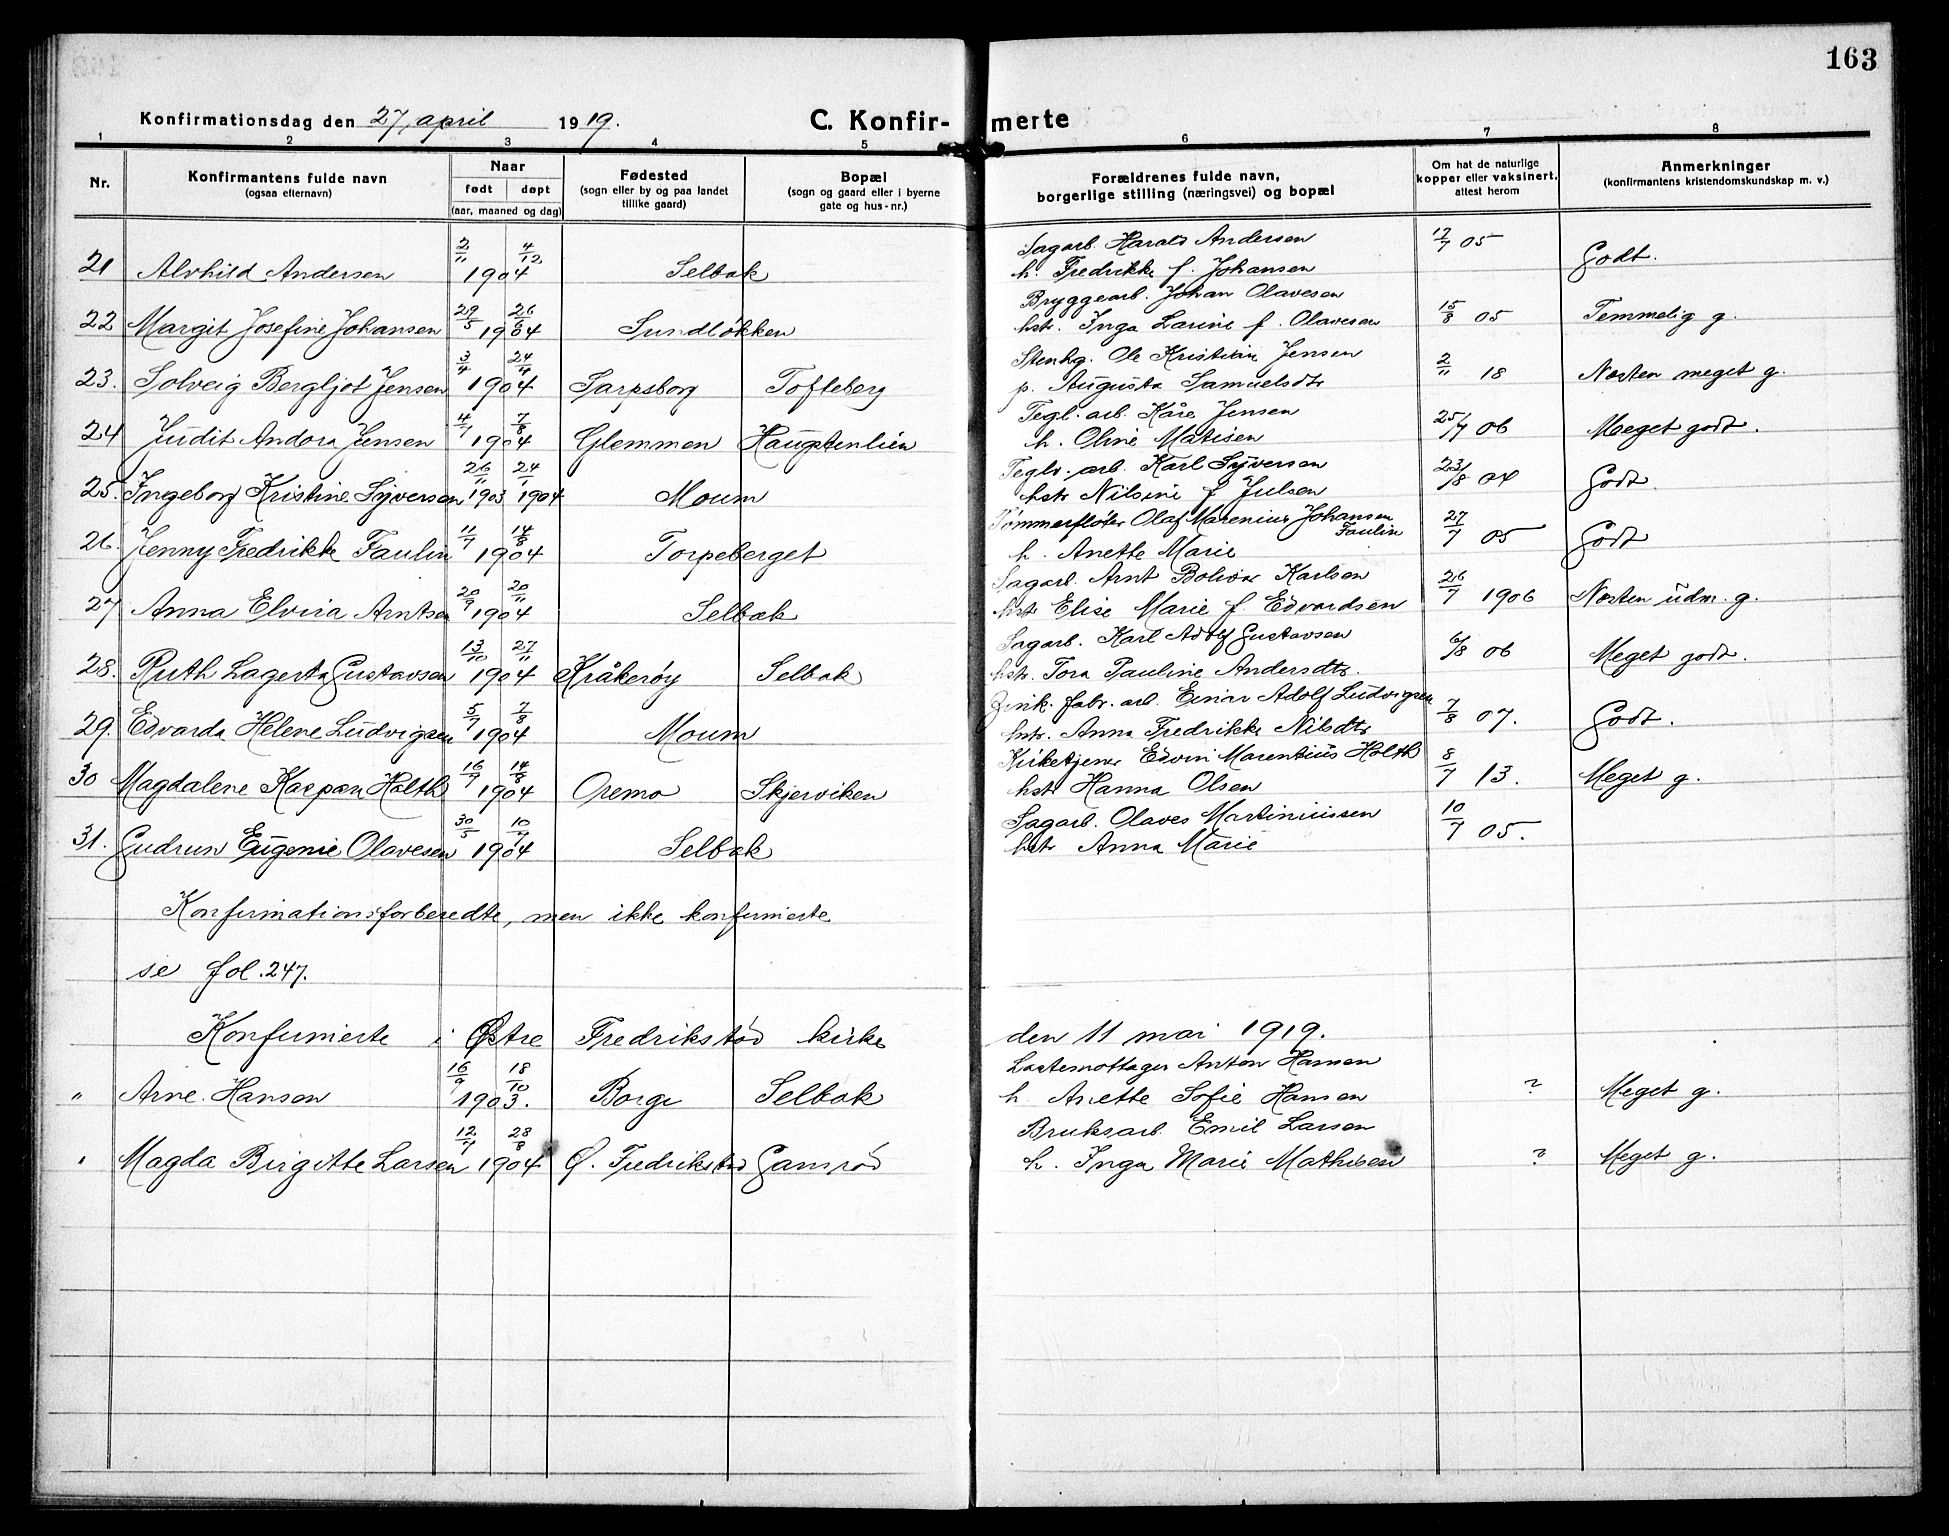 163
Konfirmationsdag den 27, april 1919.
C. Konfirmerte
1 2 3 4 5 6 7 8
Nr.
Konfirmantens fulde navn
(ogsaa efternavn)
Naar
født døpt
(aar, maaned og dag)
Fødested
(sogn eller by og paa landet
tillike gaard)
Bopæl
(sogn og gaard eller i byerne
gate og hus-nr.)
Forældrenes fulde navn,
borgerlige stilling (næringsvei) og bopæl
Om hat de naturlige
kopper eller vaksinert,
attest herom
Anmerkninger
(konfirmantens kristendomskundskap m. v.)
2/11 4/12 Sagarb. Harald Andersen 17/7 05
21 Alvhild Andersen 1904 Selbak h. Fredrikke f. Johansen Godt.
29/5 26/6 Bryggearb. Johan Olavesen
22 Margit Josefine Johansen 1904 Sundløkken hstr. Inga Larine f. Olavesen 15/8 05 Temmelig g.
3/4 24/4 Stenhg. Ole Kristian Jensen
23. Solveig Bergljot Jensen 1904 Sarpsborg Tofteberg p. Augusta Samuelsdtr 2/11 18 Næsten meget g.
4/1 7/8 Tegl. arb. Kåre Jensen
24 Judit Andora Jensen 1904 Glemmen Haugstenlien h. Oline Matisen 25/7 06 Meget godt.
26/11 24/1 Teglv. arb. Karl Syversen
25. Ingeborg Kristine Syversen 1903 1904 Moum hstr Nilsine f Julsen 23/8 04 Godt.
11/7 14/8 Tømmerfløter Olaf Marenius Johansen
Faulin
26. Jenny Fredrikke Faulin 1904 Torpeberget h. Anette Marie 27/7 05 Godt
20/9 20/11 Sagarb. Arnt Bolivar Karlsen
27 Anna Elvira Arntsen 1904 Selbak hstr Elise Marie f. Edvardsen 26/7 1906 Næsten udm. g.
13/10 27/11 Sagarb. Karl Adolf Gustavsen
28. Ruth Lagerta Gustavsen 1904 Kråkerøy Selbak hstr. Tora Pauline Andersdtr. 6/8 06 Meget godt.
5/7 7/8 Zink. fabr. arb. Einar Adolf Ludvigsen
29. Edvarda Helene Ludvigsen 1904 Moum hstr. Anna Fredrikke Nilsdtr 7/8 07. Godt.
16/7 14/8 Kirketjener Edvin Marentius Holth
30 Magdalene Kaspara Holth 1904 Oremo Skjærviken hstr Hanna Olsen 8/7 13. Meget g.
30/5 10/7 Sagarb. Olaves Martiniussen
31. Gudrun Eugenie Olavesen 1904 Selbak hstr Anna Marie 10/7 05.
Konfirmationsforberedte, men ikke konfirmerte
se fol. 247.
Konfirmerte i Østre Fredrikstad kirke den 11 mai 1919.
16/9 18/10 Lastemottager Anton Hansen
" Arne Hansen 1903. Borge Selbak h. Anette Sofie Hansen ? Meget g.
28/8 Bruksarb. Emil Larsen
" Magda Birgitte Larsen 1904 Ø. Fredrikstad Gansrød h. Inga Marie Mathisen ? Meget g.